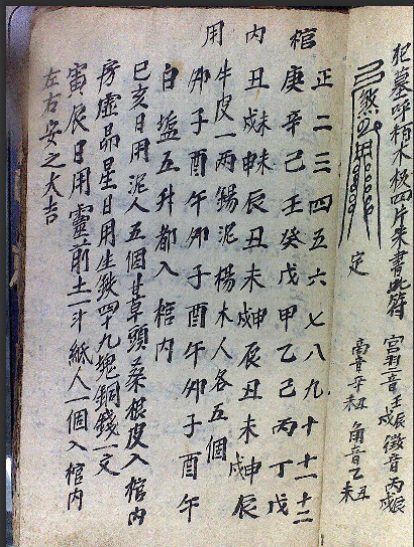 犯墓呼柏木板四片朱書此符
宮羽二音壬辰戌 徵音丙戌辰
商音辛未丑 角音乙丑未
三煞
定
正二三四五六七八九十十一十二
棺庚辛己壬癸戊甲乙己丙丁戊
內丑戌未申未辰丑未戌申辰丑未戌申辰
用牛皮一兩錫泥楊木人各五個
卯子酉午卯子酉午卯子酉午
白塩五升都入棺內
巳亥日用泥人五個甘草頭桑根皮入棺內
房虛昴星日用生鉄四十九塊銅錢一文
寅辰日用靈前土一斗紙人一個入棺內
左右安之大吉